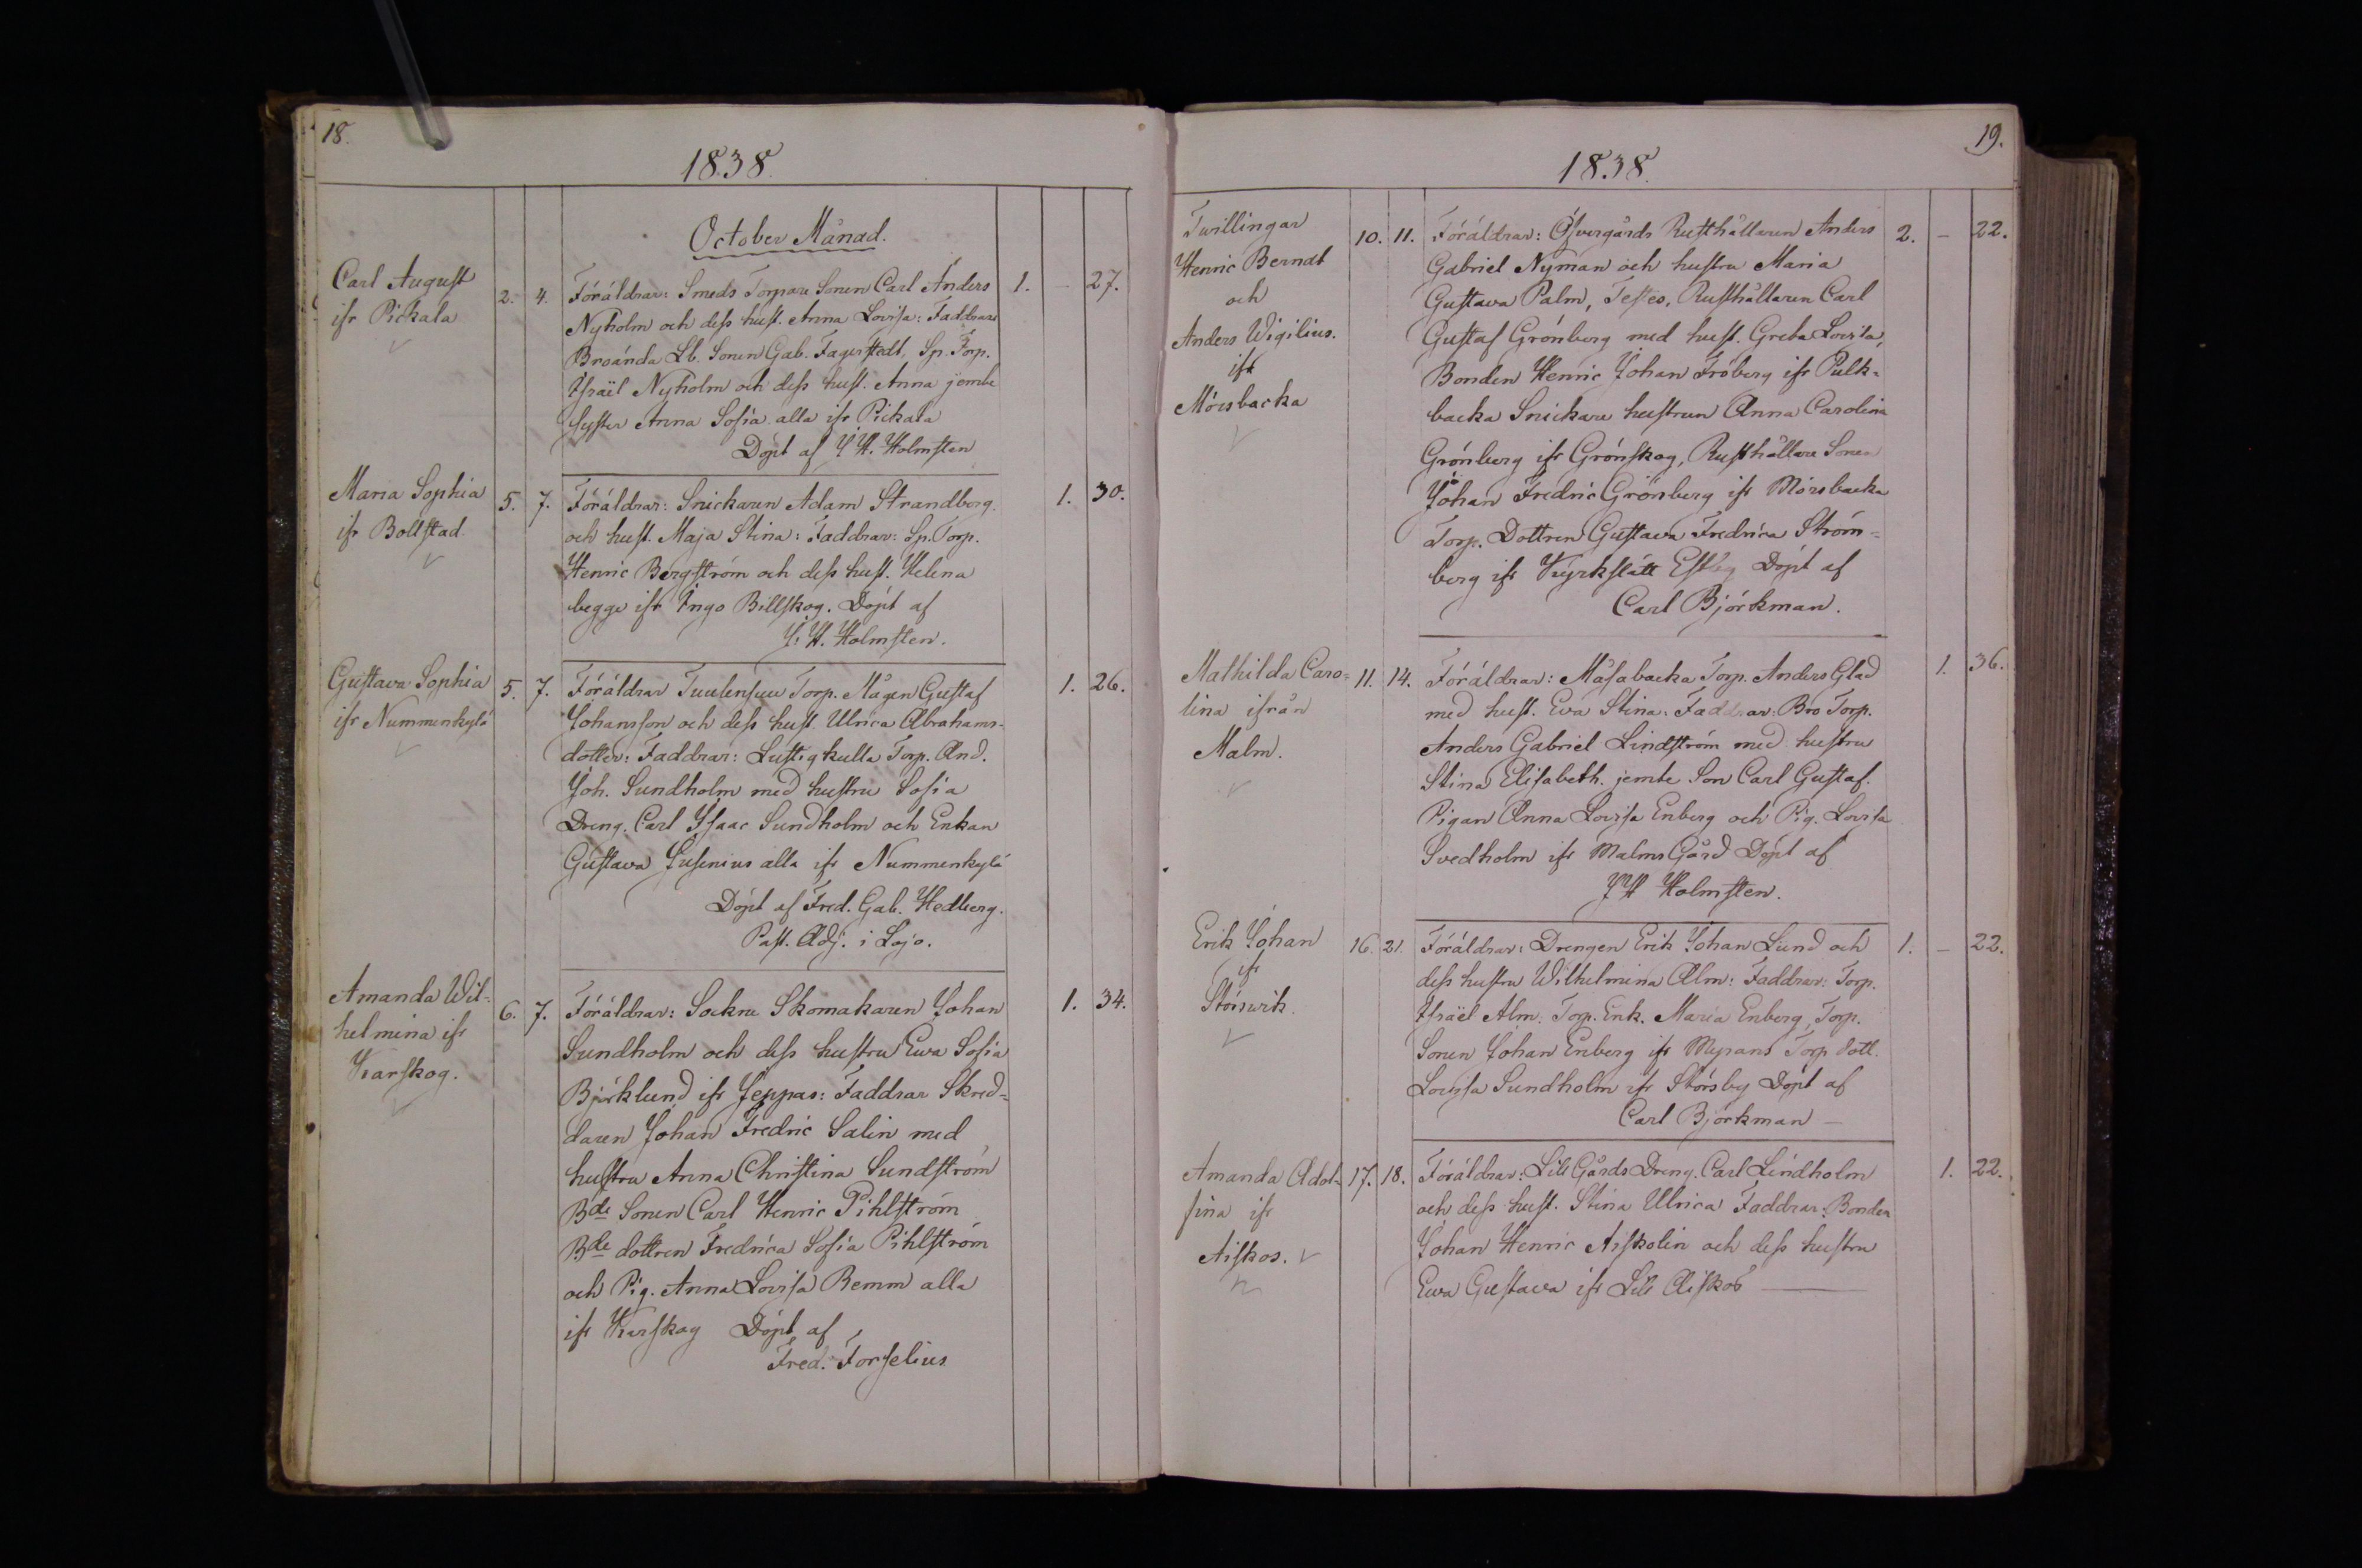 18.
1838.
October Månad.
Carl August
ifr Pickala
2. 4.
Föräldrar: Smeds Torpare Sonen Carl Anders
Nyholm och dess hust. Anna Lovisa: Faddrare
Broända Lb. Sonen Gab. Fagerstedt, Sp. Torp.
Israël Nyholm och dess hust. Anna jemte
syster Anna Sofia alla ifr Pickala
Döpt af J. H. Holmsten
1. – 27.
Maria Sophia
ifr Bollstad.
5. 7.
Föräldrar: Snickaren Adam Strandberg.
och hust. Maja Stina: Faddrar: Sp. Torp.
Henric Bergström och dess hust. Helena
begge ifr Ingo Billskog. Döpt af
J. H. Holmsten.
1. 30.
Gustava Sophia
ifr Nummenkylä
5. 7.
Föräldrar Tuulensuu Torp. Mågen Gustaf
Johansson och dess hust. Ulrica Abrahams-
dotter: Faddrar: Lustigkulla Torp. And.
Joh. Sundholm med hustru Sofia
Dreng. Carl Isaac Sundholm och Enkan
Gustava Gusenius alla ifr Nummenkylä
Döpt af Fred. Gab. Hedberg.
Past. Adj. i Lojo.
1. 26.
Amanda Wil-
helmina ifr
Karskog.
6. 7.
Föräldrar: Sockne Skomakaren Johan
Sundholm och dess hustru Ewa Sofia
Björklund ifr Jeppas: Faddrar Skred-
daren Johan Fredric Salin med
hustru Anna Christina Sundström
Bde Sonen Carl Henric Pihlström
Bde dottren Fredrica Sofia Pihlström
och Pig. Anna Lovisa Remm alla
ifr Karskog Döpt af
Fred. Forselius
1. 34.
19.
1838.
Twillingar
Henric Berndt
och
Anders Wigilius.
ifr
Mörsbacka
10. 11.
Föräldrar: Öfvergårds Rusthållaren Anders
Gabriel Nyman och hustru Maria
Gustava Palm, Testes, Rusthållaren Carl
Gustaf Grönberg med hust. Greta Lovisa,
Bonden Henric Johan Fröberg ifr Pulk-
backa Snickare hustrun Anna Carolina
Grönberg ifr Grönskog, Rusthållare Sonen
Johan Fredric Grönberg ifr Mörsbacka
Torp. Dottren Gustava Fredrica Ström-
berg ifr Kyrkslätt Estby Döpt af
Carl Björkman.
2. – 22.
Mathilda Caro-
lina ifrån
Malm.
11. 14.
Föräldrar: Måsabacka Torp. Anders Glad
med hust. Eva Stina: Faddrar: Bro Torp.
Anders Gabriel Lindström med hustru
Stina Elisabeth. jemte Son Carl Gustaf.
Pigan Anna Lovisa Enberg och Pig. Lovisa
Svedholm ifr Malms Gård Döpt af
J H Holmsten.
1. 36.
Erik Johan
ifr
Störsvik.
16. 21.
Föräldrar: Drengen Erik Johan Lund och
dess hustru Wilhelmina Alm: Faddrar: Torp.
Israël Alm. Torp. Enk. Maria Enberg, Torp.
Sonen Johan Enberg ifr Myrans Torp dott.
Lovisa Sundholm ifr Störsby Döpt af
Carl Björkman –
1. – 22.
Amanda Adol-
fina ifr
Aiskos.
17. 18.
Föräldrar: Lill Gårds Dreng. Carl Lindholm
och dess hust. Stina Ulrica Faddrar: Bonden
Johan Henric Aiskolin och dess hustru
Ewa Gustava ifr Lill Aiskos —
1. 22.